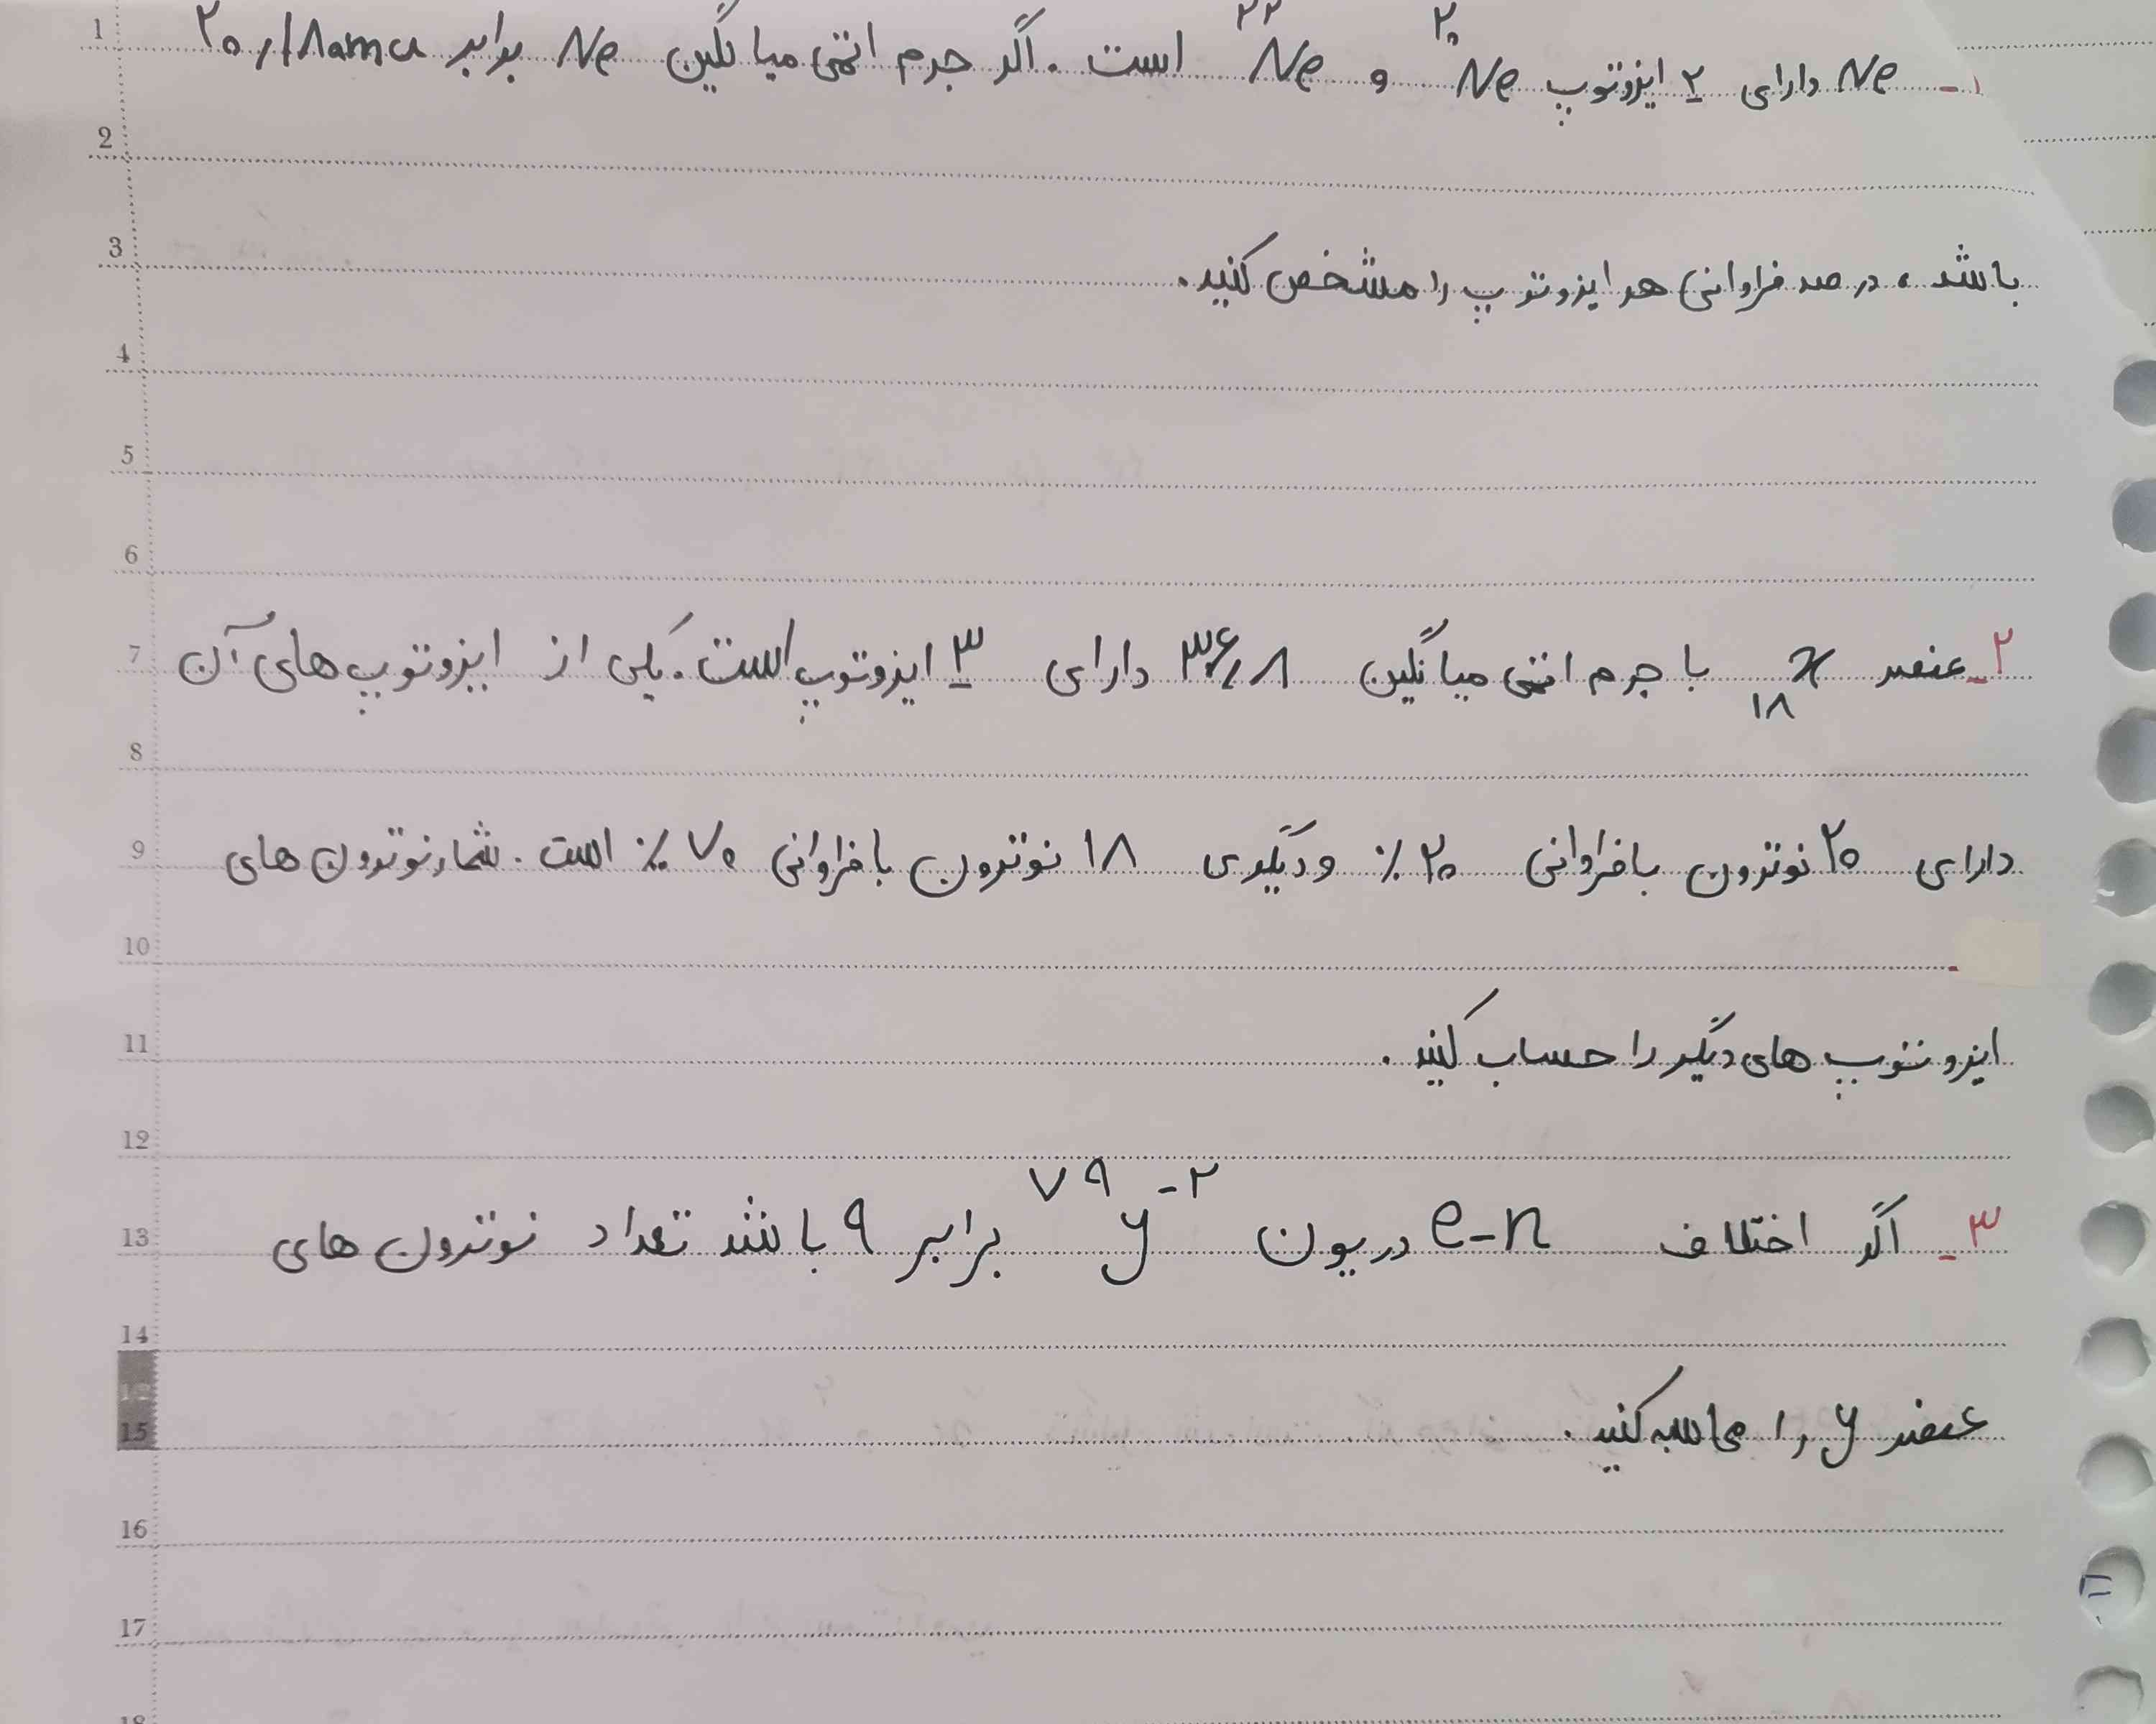 1
۱- Ne دارای ۲ ایزوتوپ ²⁰Ne و ²²Ne است. اگر جرم اتمی میانگین Ne برابر ۲۰٫۱۸amu
2
3
باشد، درصد فراوانی هر ایزوتوپ را مشخص کنید.
4
5
6
7
۲- عنصر ₁₈x با جرم اتمی میانگین ۳۶٫۸ دارای ۳ ایزوتوپ است. یکی از ایزوتوپ های آن
8
9
دارای ۲۰ نوترون با فراوانی ۲۰٪ و دیگری ۱۸ نوترون با فراوانی ۷۰٪ است. شمار نوترون های
10
11
ایزوتوپ های دیگر را حساب کنید.
12
13
۳- اگر اختلاف e-n در یون ⁷⁹y⁻² برابر ۹ باشد تعداد نوترون های
14
15
عنصر y را محاسبه کنید.
16
17
18